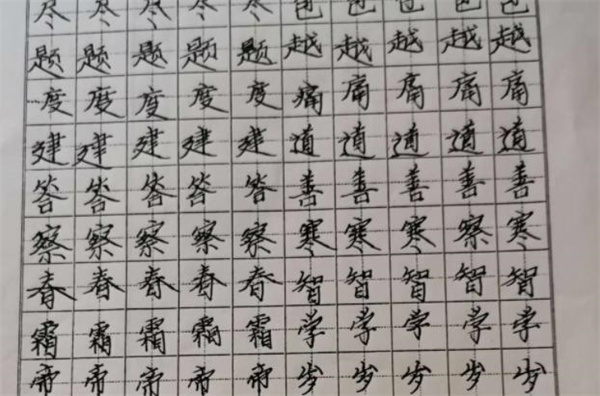 尽尽尽尽尽包包包包包
题题题题题越越越越越
度度度度度痛痛痛痛痛
建建建建建道道道道道
答答答答答善善善善善
察察察察察寒寒寒察寒
春春春春春智智智智智
霜霜霜霜霜学学学学学
帝帝帝帝帝岁岁岁岁岁